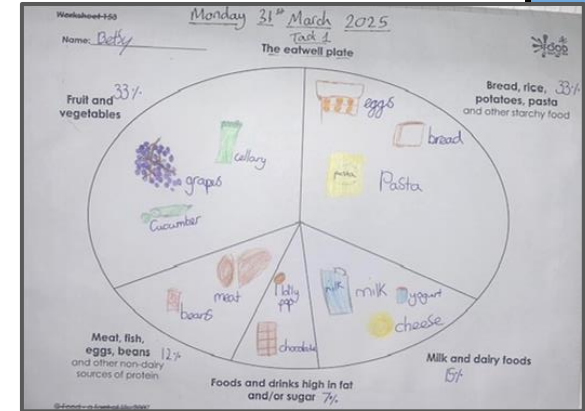 Worksheet 150
Monday 31st March 2025
Task 1
Name: Betsy
The eatwell plate
Fruit and 33%
vegetables
Bread, rice, 33%
potatoes, pasta
and other starchy food
eggs
bread
pasta
Pasta
cellary
grapes
Cucumber
meat
beans
lolly
pop
chocolate
milk
milk
yogurt
cheese
Meat, fish,
eggs, beans 12%
and other non-dairy
sources of protein
Foods and drinks high in fat
and/or sugar 7%
Milk and dairy foods
15%